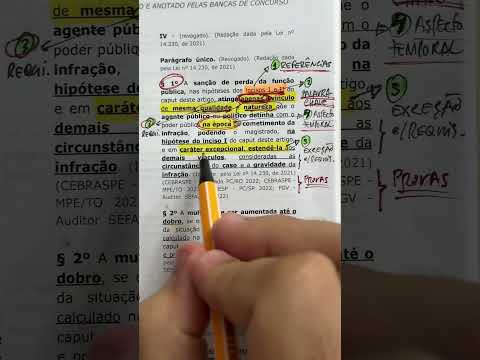 O E ANOTADO PELAS BANCAS DE CONCURSO
IV - (revogado). (Redação dada pela Lei nº
14.230, de 2021)
Parágrafo único. (Revogado). (Redação dada
pela Lei nº 14.230, de 2021)
§ 1º A sanção de perda da função
pública, nas hipóteses dos incisos I e II do
caput deste artigo, atinge apenas o vínculo
de mesma qualidade e natureza que o
agente público ou político detinha com o
poder público na época do cometimento da
infração, podendo o magistrado, na
hipótese do inciso I do caput deste artigo,
e em caráter excepcional, estendê-la aos
demais vínculos, consideradas as
circunstâncias do caso e a gravidade da
infração. pela Lei nº 14.230, de 2021)
(CEBRASPE - PC/RO 2022; CEBRASPE -
MPE/TO 2022 - PC/SP 2022; FGV -
Auditor SEFA
§ 2º A mul ser aumentada até o
dobro, se o
calculado na
caput
1 REFERÊNCIAS
2 PALAVRA
CHAVE
4 ASPECTO
TEMPORAL
5 EXCEÇÃO
c/REQUIS.
PROVAS
3
REQUI.
de mesma
agente público
poder público
infração,
e em caráter
demais
circunstân
infração.
(CEBRASPE
MPE/TO
Auditor SEFA
§ 2º A
dobro, se
da situação
calculado
caput
4 ASPECTO
TEMPORAL
5 EXCEÇÃO
c/REQUIS.
PROVAS